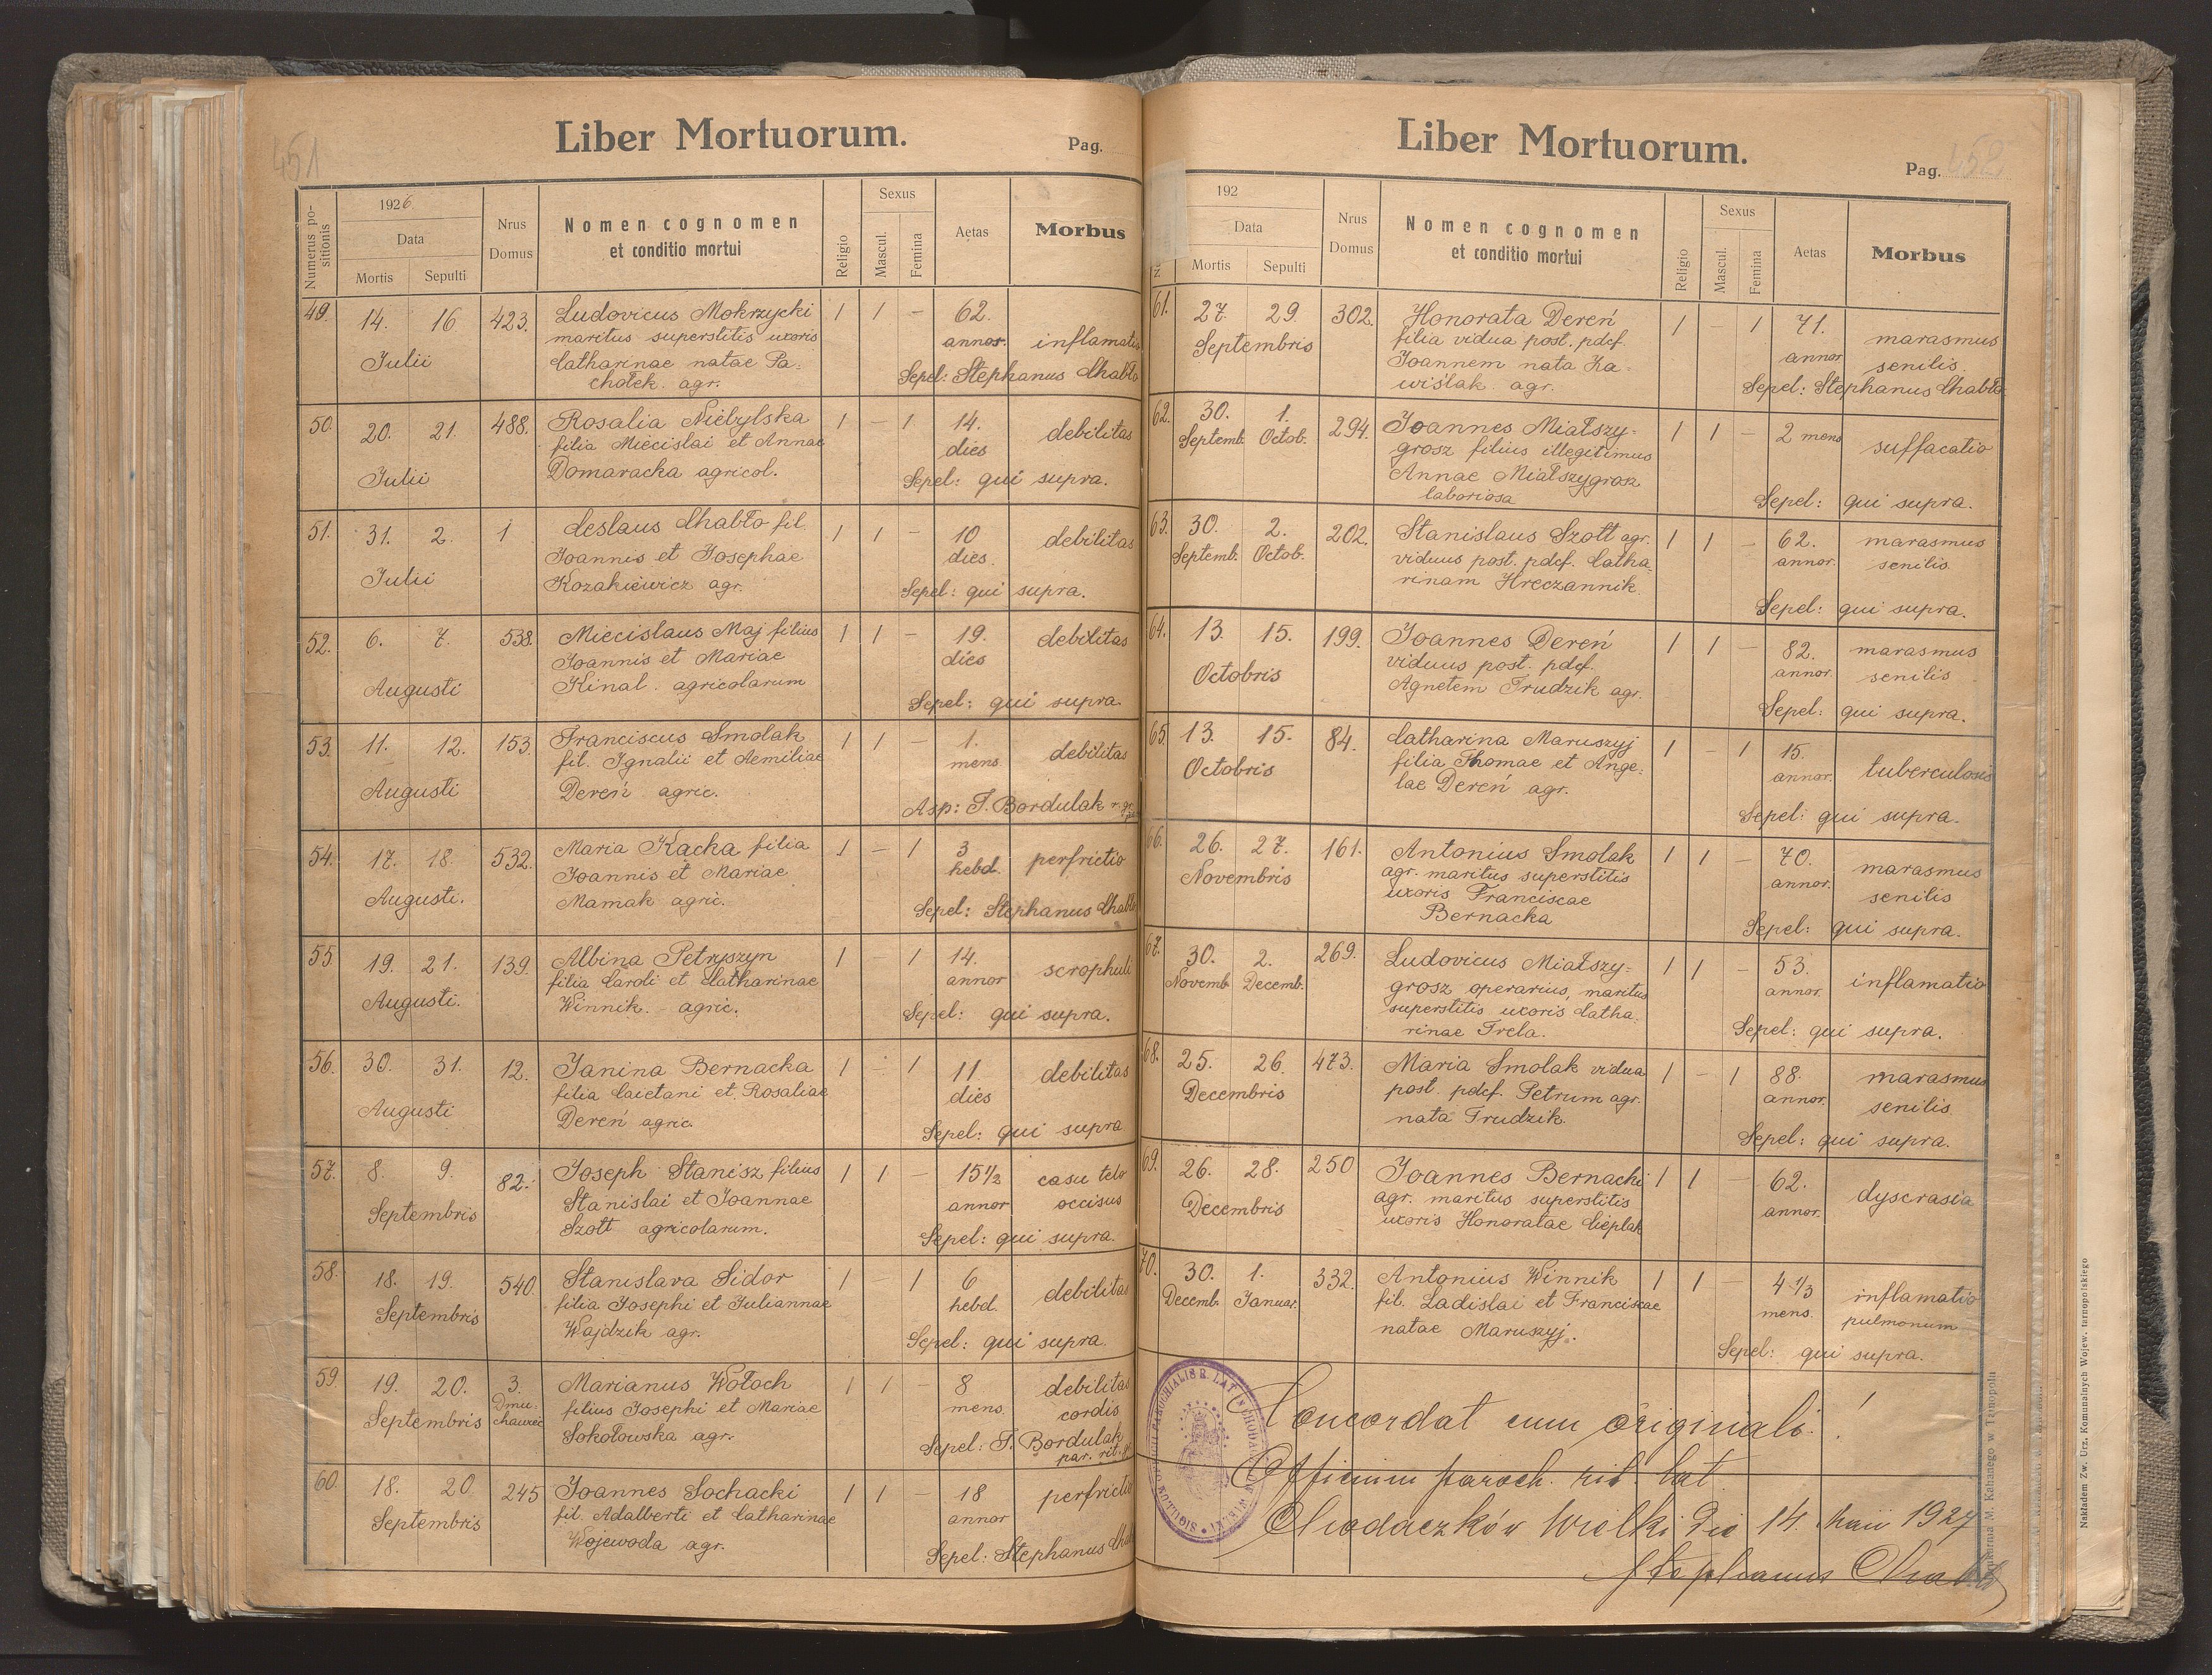 451
Liber Mortuorum.
Pag.
Numerus positionis
1926
Data
Mortis
Sepulti
Nrus
Domus
Nomen cognomen
et conditio mortui
Religio
Sexus
Mascul.
Femina
Aetas
Morbus
49. 14. 16. 423. Ludovicus Mokrzycki 1 1 - 62.
maritus superstitis uxoris annor. inflamatio
Julii Catharinae natae Pa-
chołek. agr. Sepel: Stephanus Chabło
50. 20. 21. 488. Rosalia Niebylska 1 - 1 14. debilitas
filia Miecislai et Annae dies
Julii Domaracka agricol. Sepel: qui supra.
51. 31. 2. 1 Ceslaus Chabło fil. 1 1 - 10 debilitas
Joannis et Josephae dies.
Julii Kozakiewicz agr. Sepel: qui supra.
52. 6. 7. 538. Miecislaus Maj filius 1 1 - 19. debilitas
Joannis et Mariae dies
Augusti Kinal. agricolarum Sepel: qui supra.
53. 11. 12. 153. Franciscus Smolak 1 1 - 1. debilitas
fil. Ignatii et Aemiliae mens.
Augusti Dereń agric. Asp: T. Bordulak
54. 17. 18. 532. Maria Kącka filia 1 - 1 3 perfrictio
Joannis et Mariae hebd.
Augusti. Mamak agric. Sepel: Stephanus Chabło
55. 19. 21. 139. Albina Petryszyn 1 - 1 14. scrophuli
filia Caroli et Catharinae annor
Augusti. Winnik. agric. Sepel: qui supra.
56. 30. 31. 12. Janina Bernacka 1 - 1 11 debilitas
filia Caietani et Rosaliae dies
Augusti Dereń agric. Sepel: qui supra
57. 8. 9. 82. Joseph Stanisz filius 1 1 - 15 1/2 casu telo
Septembris Stanislai et Joannae annor occisus
Szott agricolarum. Sepel: qui supra.
58. 18. 19. 540. Stanislava Sidor 1 - 1 6 debilitas
Septembris filia Josephi et Juliannae hebd.
Wajdzik agr. Sepel: qui supra.
59. 19. 20. 3. Marianus Wołoch 1 1 - 8 debilitas
Septembris Dmu-
chawec filius Josephi et Mariae mens. cordis
Sokołowska agr. Sepel: T. Bordulak
par. rit. gr.
60. 18. 20. 245 Joannes Sochacki 1 1 - 18 perfrictio
Septembris fil. Adalberti et Catharinae annor
Wojewoda agr. Sepel: Stephanus Chabło
Liber Mortuorum.
Pag. 452
192
Data
Mortis
Sepulti
Nrus
Domus
Nomen cognomen
et conditio mortui
Religio
Sexus
Mascul.
Femina
Aetas
Morbus
61. 27. 29. 302. Honorata Dereń 1 - 1 71. marasmus
Septembris filia vidua post. pdef. annor senilis.
Joannem nata Za-
wiślak. agr. Sepel: Stephanus Chabło
62. 30. 1. 294. Joannes Miałszy- 1 1 - 2 mens suffacatio
Septemb. Octob. grosz filius illegitimus
Annae Miałszygrosz
laboriosa Sepel: qui supra.
63. 30. 2. 202. Stanislaus Szott agr. 1 1 - 62. marasmus
Septemb. Octob. viduus post. pdef. Catha- annor. senilis
rinam Hreczannik. Sepel: qui supra.
64. 13. 15. 199. Joannes Dereń 1 1 - 82. marasmus
Octobris viduus post. pdef. annor. senilis
Agnetem Trudzik agr. Sepel: qui supra.
65. 13. 15. 84. Catharina Maruszyj 1 - 1 15. tuberculosis
Octobris filia Thomae et Ange- annor.
lae Dereń agr. Sepel: qui supra.
66. 26. 27. 161. Antonius Smolak 1 1 - 70. marasmus
Novembris agr. maritus superstitis annor. senilis
uxoris Franciscae
Bernacka Sepel: qui supra.
67. 30. 2. 269. Ludovicus Miałszy- 1 1 - 53. inflamatio
Novemb. Decemb. grosz operarius, maritus annor.
superstitis uxoris Catha-
rinae Trela. Sepel: qui supra.
68. 25. 26. 473. Maria Smolak vidua 1 - 1 88. marasmus
Decembris post. pdef. Petrum agr. annor. senilis
nata Trudzik. Sepel: qui supra.
69. 26. 28. 250 Joannes Bernacki 1 1 - 62. dyscrasia
Decembris agr. maritus superstitis annor.
uxoris Honoratae Cieplak
70. 30. 1. 332. Antonius Winnik 1 1 - 4 1/3 inflamatio
Decemb. Januar. fil. Ladislai et Franciscae mens. pulmonum
natae Maruszyj. Sepel: qui supra.
Concordat cum originali!
Officium paroch. rit. lat.
Chodaczków Wielki die 14. Maii 1927
Stephanus Chabło
Drukarnia M. Kataiasego w Tarnopolu
Nakładem Zw. Urz. Komunalnych Wojew. tarnopolskiego